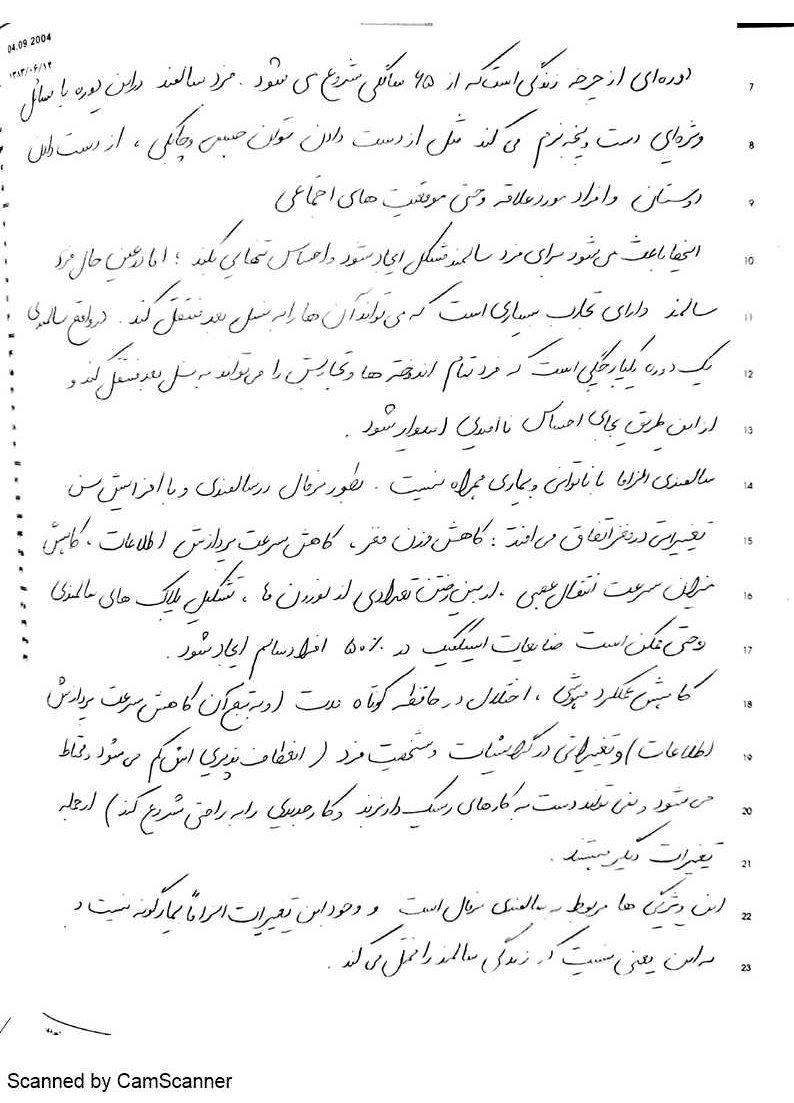 04.09.2004
۱۳۸۳/۰۶/۱۴
7 دوره‌ای از چرخه زندگی است که از ۶۵ سالگی شروع می شود. فرد سالمند در این دوره با مسائل
8 ویژه‌ای دست و پنجه نرم می کند مثل از دست دادن توان جسمی و چابکی، از دست دادن
9 دوستان و افراد مورد علاقه و حتی موقعیت های اجتماعی
10 اینها باعث می شود برای فرد سالمند مشکل ایجاد شود و احساس تنهایی بکند؛ اما در عین حال فرد
11 سالمند دارای تجارب بسیاری است که می تواند آن ها را به نسل بعد منتقل کند. در واقع سالمندی
12 یک دوره یکپارچگی است که فرد تمام اندوخته ها و تجاربش را می تواند به نسل بعد منتقل کند و
13 از این طریق بجای احساس ناامیدی امیدوار شود.
14 سالمندی الزاما با ناتوانی و بیماری همراه نیست. بطور نرمال در سالمندی و با افزایش سن
15 تغییراتی در مغز اتفاق می افتد: کاهش وزن مغز، کاهش سرعت پردازش اطلاعات، کاهش
16 میزان سرعت انتقال عصبی، از بین رفتن تعدادی از نورون ها، تشکیل پلاک های سالمندی
17 و حتی ممکن است ضایعات ایسکمیک در ۵۰٪ افراد سالم ایجاد شود.
18 کاهش عملکرد هوشی، اختلال در حافظه کوتاه مدت (و به تبع آن کاهش سرعت پردازش
19 اطلاعات) و تغییراتی در گرایشات و شخصیت فرد (انعطاف پذیری اش کم می شود و محتاط
20 می شود و نمی تواند دست به کارهای ریسک دار بزند و کار جدیدی را به راحتی شروع کند) از جمله
21 تغییرات دیگر هستند.
22 این ویژگی ها مربوط به سالمندی نرمال است و وجود این تغییرات الزاماً بیمارگونه نیست و
23 به این معنی نیست که زندگی سالمند را مختل می کند.
Scanned by CamScanner